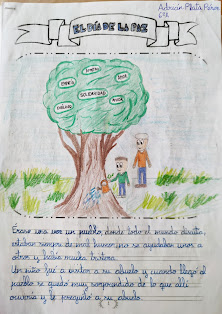 Adrián Plata Pérez
6ºC
EL DÍA DE LA PAZ
RESPETO
AMOR
EMPATÍA
SOLIDARIDAD
DIÁLOGO
AYUDA
Erase una vez un pueblo, donde todo el mundo discutía,
estaban siempre de mal humor, no se ayudaban unos a
otros y había mucha tristeza.
Un niño fue a visitar a su abuelo y cuando llegó al
pueblo se quedó muy sorprendido de lo que allí
ocurría y le preguntó a su abuelo.